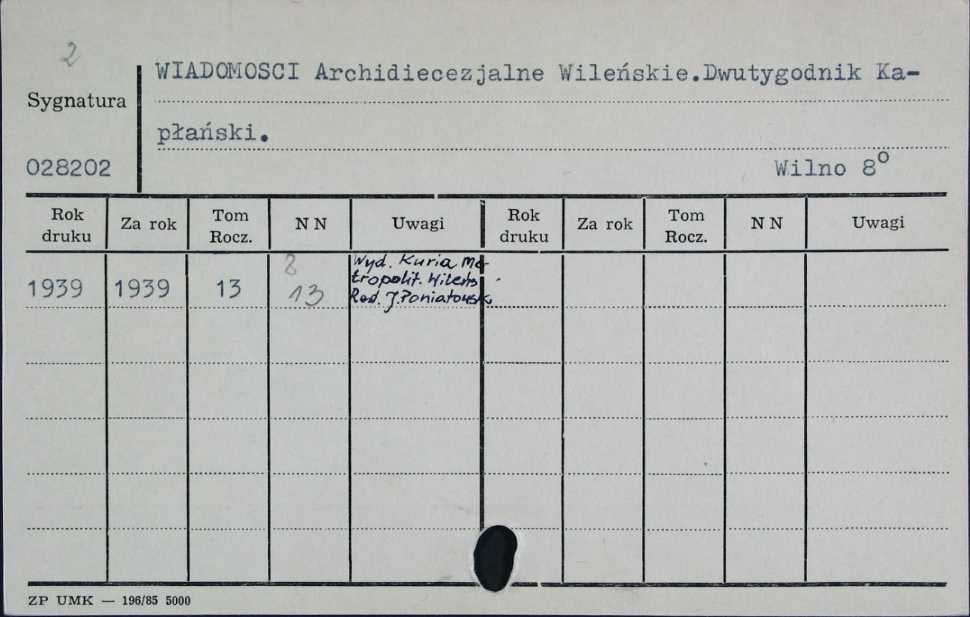 2
WIADOMOSCI Archidiecezjalne Wileńskie.Dwutygodnik Ka-
Sygnatura
płański.
028202
Wilno 8°
Rok druku Za rok Tom Rocz. N N Uwagi Rok druku Za rok Tom Rocz. N N Uwagi
8
Wyd. Kuria Me-
tropolit. Wileńs
1939 1939 13 13
Red. J. Poniatowski
ZP UMK — 196/85 5000